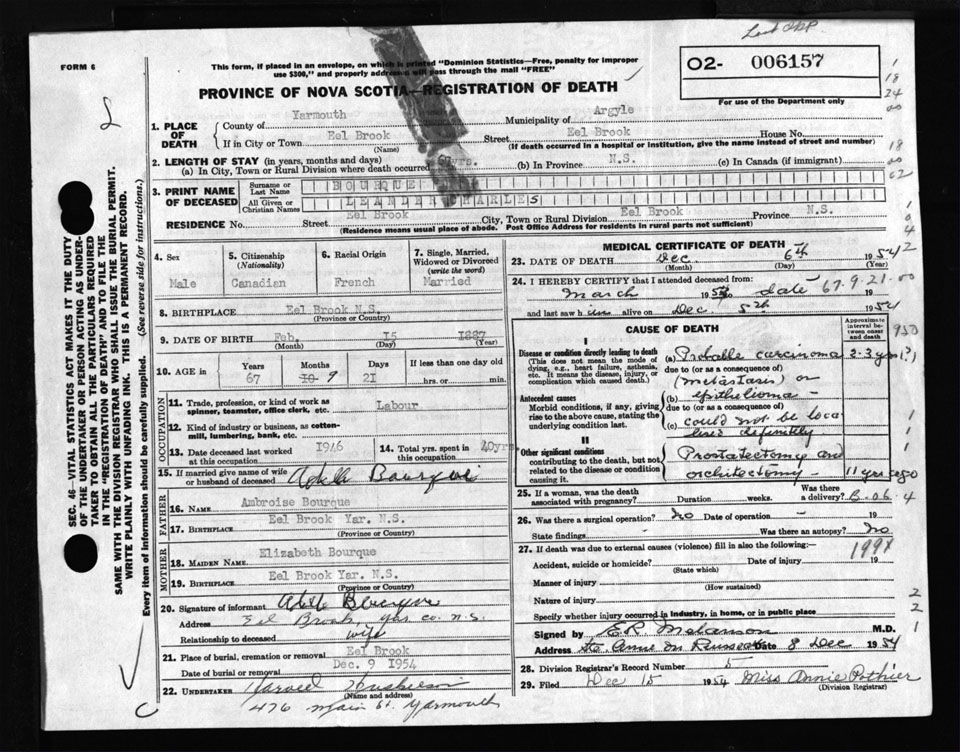 FORM 6
This form, if placed in an envelope, on which is printed "Dominion Statistics—Free, penalty for improper
use $300," and properly addressed will pass through the mail "FREE"
02- 006157
For use of the Department only
PROVINCE OF NOVA SCOTIA—REGISTRATION OF DEATH
1. PLACE OF DEATH
County of Yarmouth Municipality of Argyle
If in City or Town Eel Brook Street Eel Brook House No.
(Name) (If death occurred in a hospital or institution, give the name instead of street and number)
2. LENGTH OF STAY (in years, months and days)
(a) In City, Town or Rural Division where death occurred yrs. (b) In Province N.S. (c) In Canada (if immigrant)
3. PRINT NAME OF DECEASED
Surname or Last Name BOURQUE
All Given or Christian Names LEANDER CHARLES
RESIDENCE No. Street Eel Brook City, Town or Rural Division Eel Brook Province N.S.
(Residence means usual place of abode. Post Office Address for residents in rural parts not sufficient)
SEC. 46—VITAL STATISTICS ACT MAKES IT THE DUTY
OF THE UNDERTAKER OR PERSON ACTING AS UNDER-
TAKER TO OBTAIN ALL THE PARTICULARS REQUIRED
IN THE "REGISTRATION OF DEATH" AND TO FILE THE
SAME WITH THE DIVISION REGISTRAR WHO SHALL ISSUE THE BURIAL PERMIT.
WRITE PLAINLY WITH UNFADING INK. THIS IS A PERMANENT RECORD.
Every item of information should be carefully supplied. (See reverse side for instructions.)
4. Sex
Male
5. Citizenship
(Nationality)
Canadian
6. Racial Origin
French
7. Single, Married,
Widowed or Divorced
(write the word)
Married
8. BIRTHPLACE Eel Brook N.S.
(Province or Country)
9. DATE OF BIRTH Feb. 15 1887
(Month) (Day) (Year)
10. AGE in
Years Months Days If less than one day old
67 10 9 21 hrs. or min.
OCCUPATION
11. Trade, profession, or kind of work as
spinner, teamster, office clerk, etc. Labour
12. Kind of industry or business, as cotton-
mill, lumbering, bank, etc.
13. Date deceased last worked
at this occupation 1946
14. Total yrs. spent in
this occupation 40yrs.
15. If married give name of wife
or husband of deceased Bourque
FATHER
16. NAME Ambroise Bourque
17. BIRTHPLACE Eel Brook Yar. N.S.
(Province or Country)
MOTHER
18. MAIDEN NAME Elizabeth Bourque
19. BIRTHPLACE Eel Brook Yar. N.S.
(Province or Country)
20. Signature of informant Bourque
Address Eel Brook, Yar. co. N.S.
Relationship to deceased wife
21. Place of burial, cremation or removal Eel Brook
Date of burial or removal Dec. 9 1954
22. UNDERTAKER
(Name and address)
476 Main St. Yarmouth
MEDICAL CERTIFICATE OF DEATH
23. DATE OF DEATH Dec 6th 1954
(Month) (Day) (Year)
24. I HEREBY CERTIFY that I attended deceased from:
March to date 67.9.21.00
and last saw him alive on Dec 5th 1954
CAUSE OF DEATH
Approximate
interval be-
tween onset
and death
I
Disease or condition directly leading to death
(This does not mean the mode of
dying, e.g., heart failure, asthenia,
etc. It means the disease, injury, or
complication which caused death.)
(a) Probable carcinoma 2-3 yrs (?)
due to (or as a consequence of)
(metastasis) or
Antecedent causes
Morbid conditions, if any, giving
rise to the above cause, stating the
underlying condition last.
(b) epithelioma -
due to (or as a consequence of)
(c) could not be loca
lized definitely
II
Other significant conditions
contributing to the death, but not
related to the disease or condition
causing it.
Prostatectomy and
orchitectomy - 11 yrs ago
25. If a woman, was the death
associated with pregnancy? Duration weeks. Was there
a delivery? B-06.4
26. Was there a surgical operation? No Date of operation - 19
State findings - Was there an autopsy? No
27. If death was due to external causes (violence) fill in also the following: 199X
Accident, suicide or homicide Date of injury 19
(State which)
Manner of injury
(How sustained)
Nature of injury
Specify whether injury occurred in industry, in home, or in public place
Signed by E.R. Melanson M.D.
Address Ste. Anne du Ruisseau Date 8 Dec 1954
28. Division Registrar's Record Number 5
29. Filed Dec 15 1954 Miss Annie Pothier
(Division Registrar)